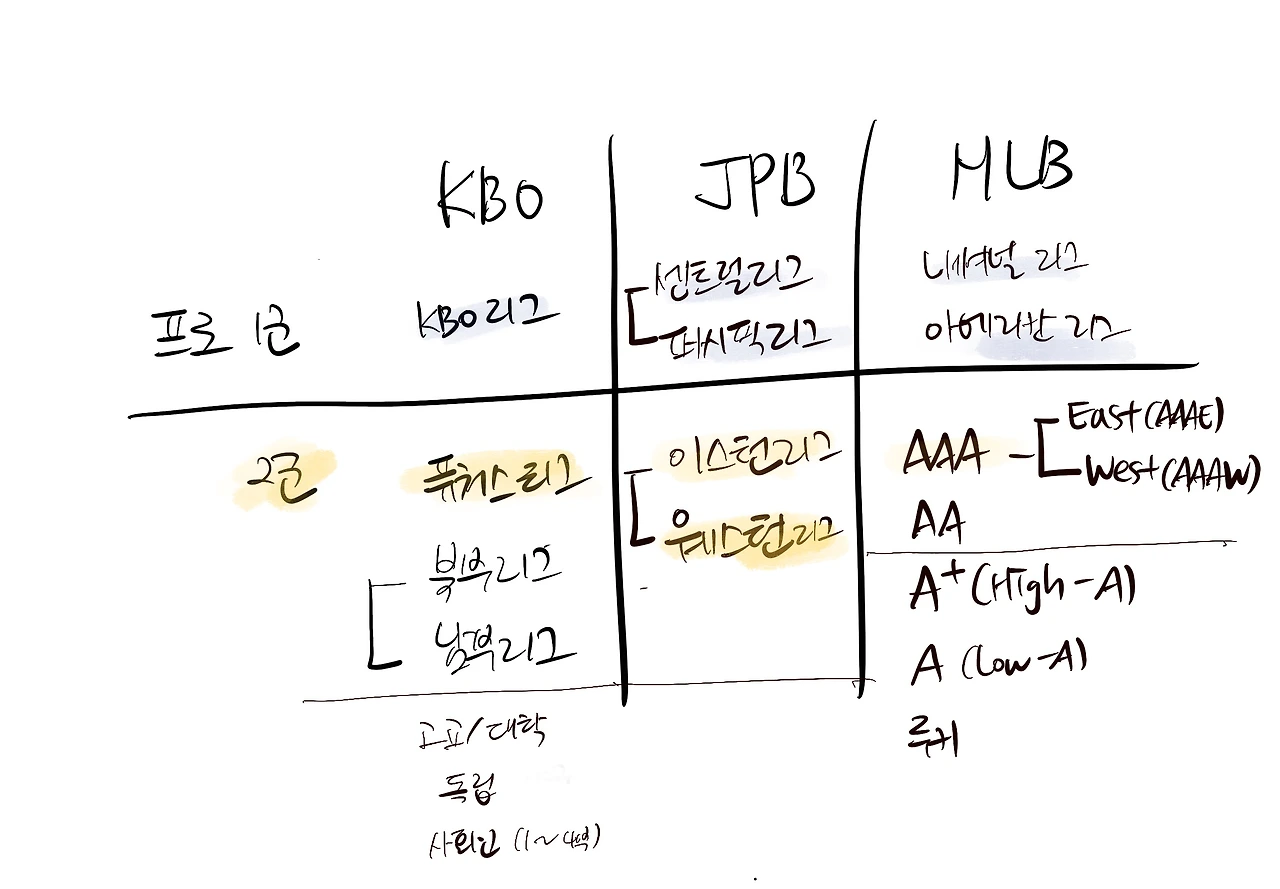 KBO JPB MLB
프로 1군 KBO리그 센트럴리그 내셔널 리그
퍼시픽리그 아메리칸 리그
2군 퓨처스리그 이스턴리그 AAA East(AAAE)
West(AAAW)
웨스턴리그 AA
북부리그 A+ (High-A)
남부리그 A (Low-A)
고교/대학 루키
독립
사회인 (1~4부)